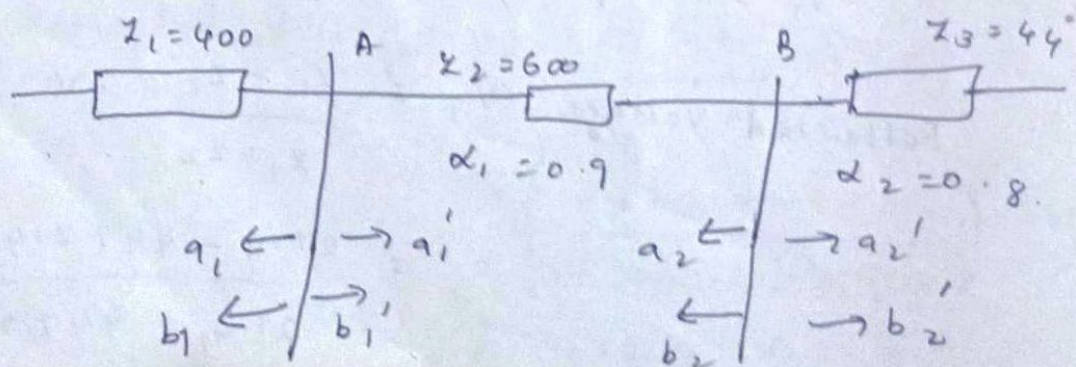 Z₁ = 400
A
Z₂ = 600
B
Z₃ = 44°
α₁ = 0.9
α₂ = 0.8.
a₁ ← → a₁'
a₂ ← → a₂'
b₁ ← → b₁'
b₂ ← → b₂'